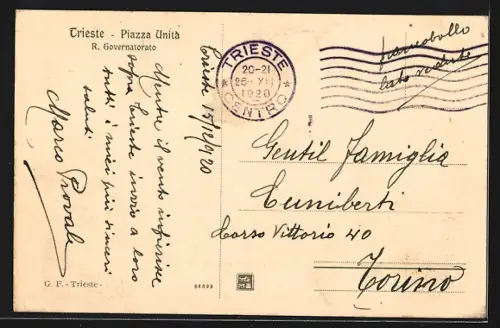 Trieste - Piazza Unità
R. Governatorato
Trieste 15/12/920
Mentre il vento infierisce
sopra Trieste invio a loro
tutti i miei più sinceri
saluti
Marco
G. F. - Trieste -
TRIESTE
20-21
XII
1920
CENTRO
francobollo
lato veduta
Gentil Famiglia
Cuniberti
Corso Vittorio 40
Torino